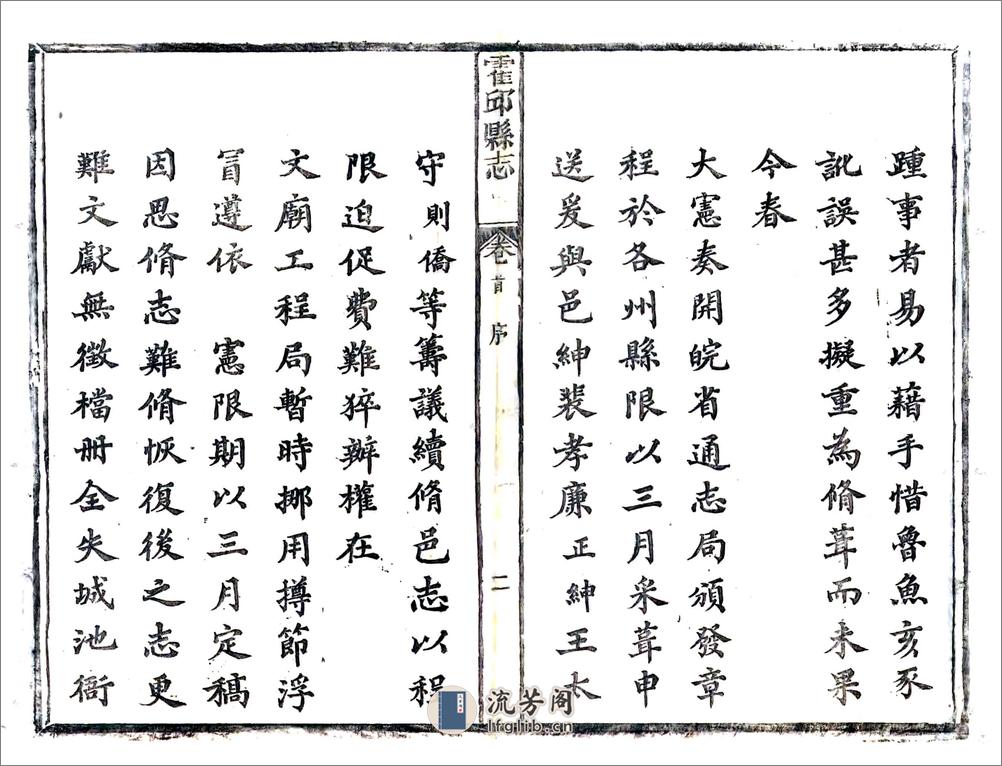 踵事者易以藉手惜魯魚亥豕
訛誤甚多擬重為脩葺而未果
今春
大憲奏開皖省通志局頒發章
程於各州縣限以三月采葺申
送爰與邑紳裴孝廉正紳王太
霍邱縣志 卷首 序 二
守則僑等籌議續脩邑志以程
限迫促費難猝辦權在
文廟工程局暫時挪用撙節浮
冒遵依 憲限期以三月定稿
因思脩志難脩恢復後之志更
難文獻無徵檔冊全失城池衙
流芳阁
lfglib.cn